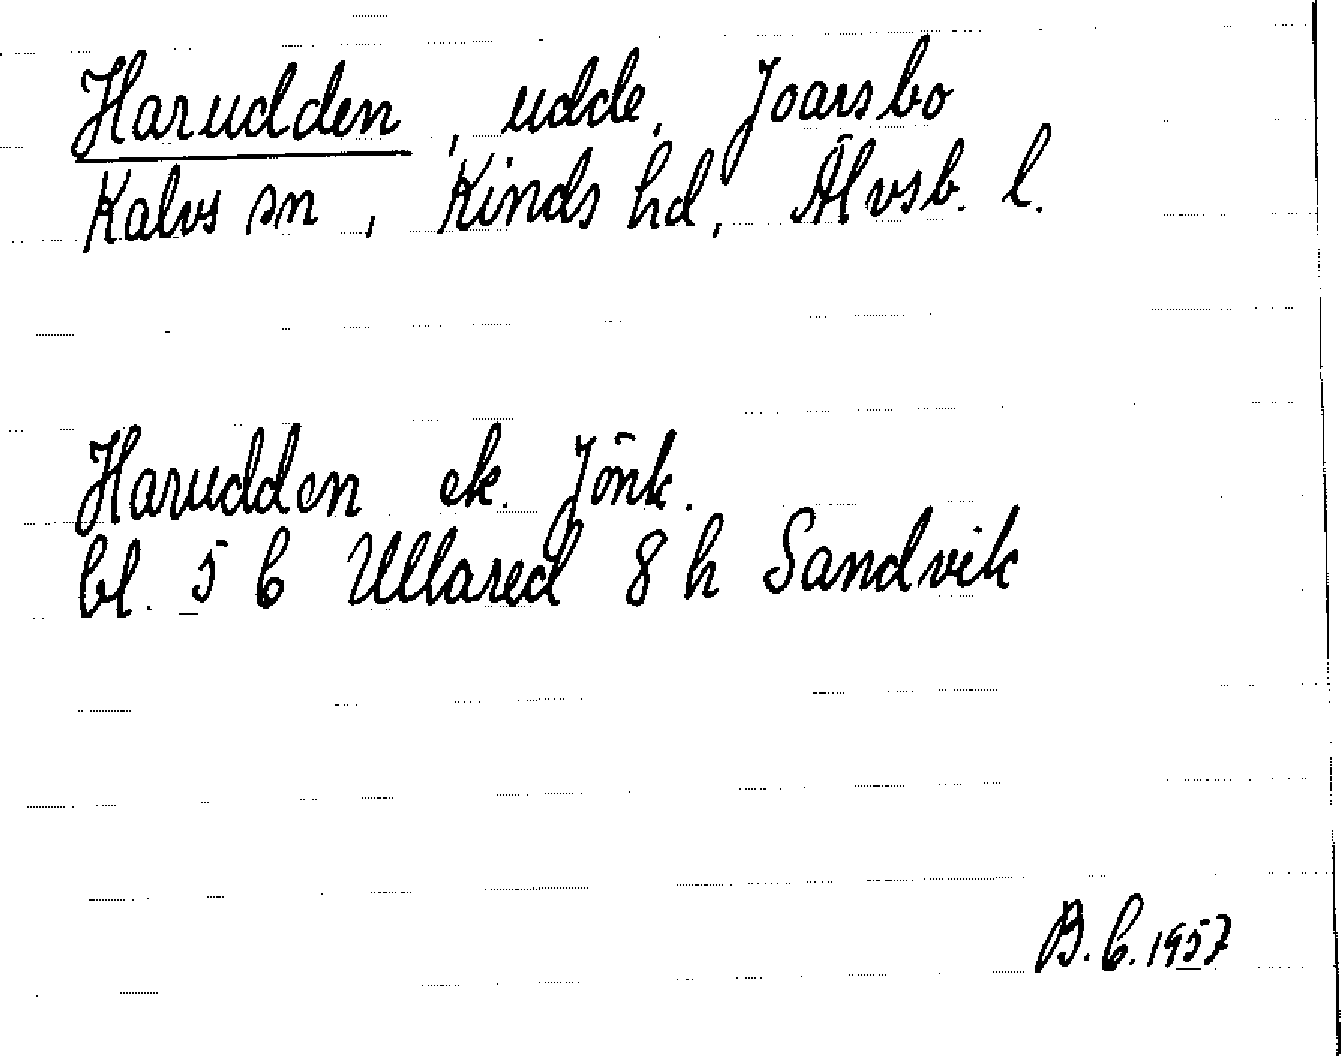 Harudden, udde, Joarsbo
Kalvs sn, Kinds hd, Älvsb. l.
Harudden ek. Jönk.
bl. 5 b Ullared 8 h Sandvik
B. b. 1957